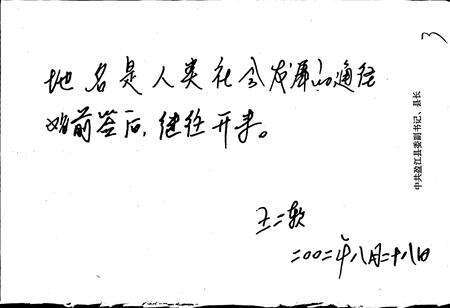 地名是人类社会发展的通
前启后,继往开来。
二00二年八月二十八日
中共盈江县委副书记、县长
3